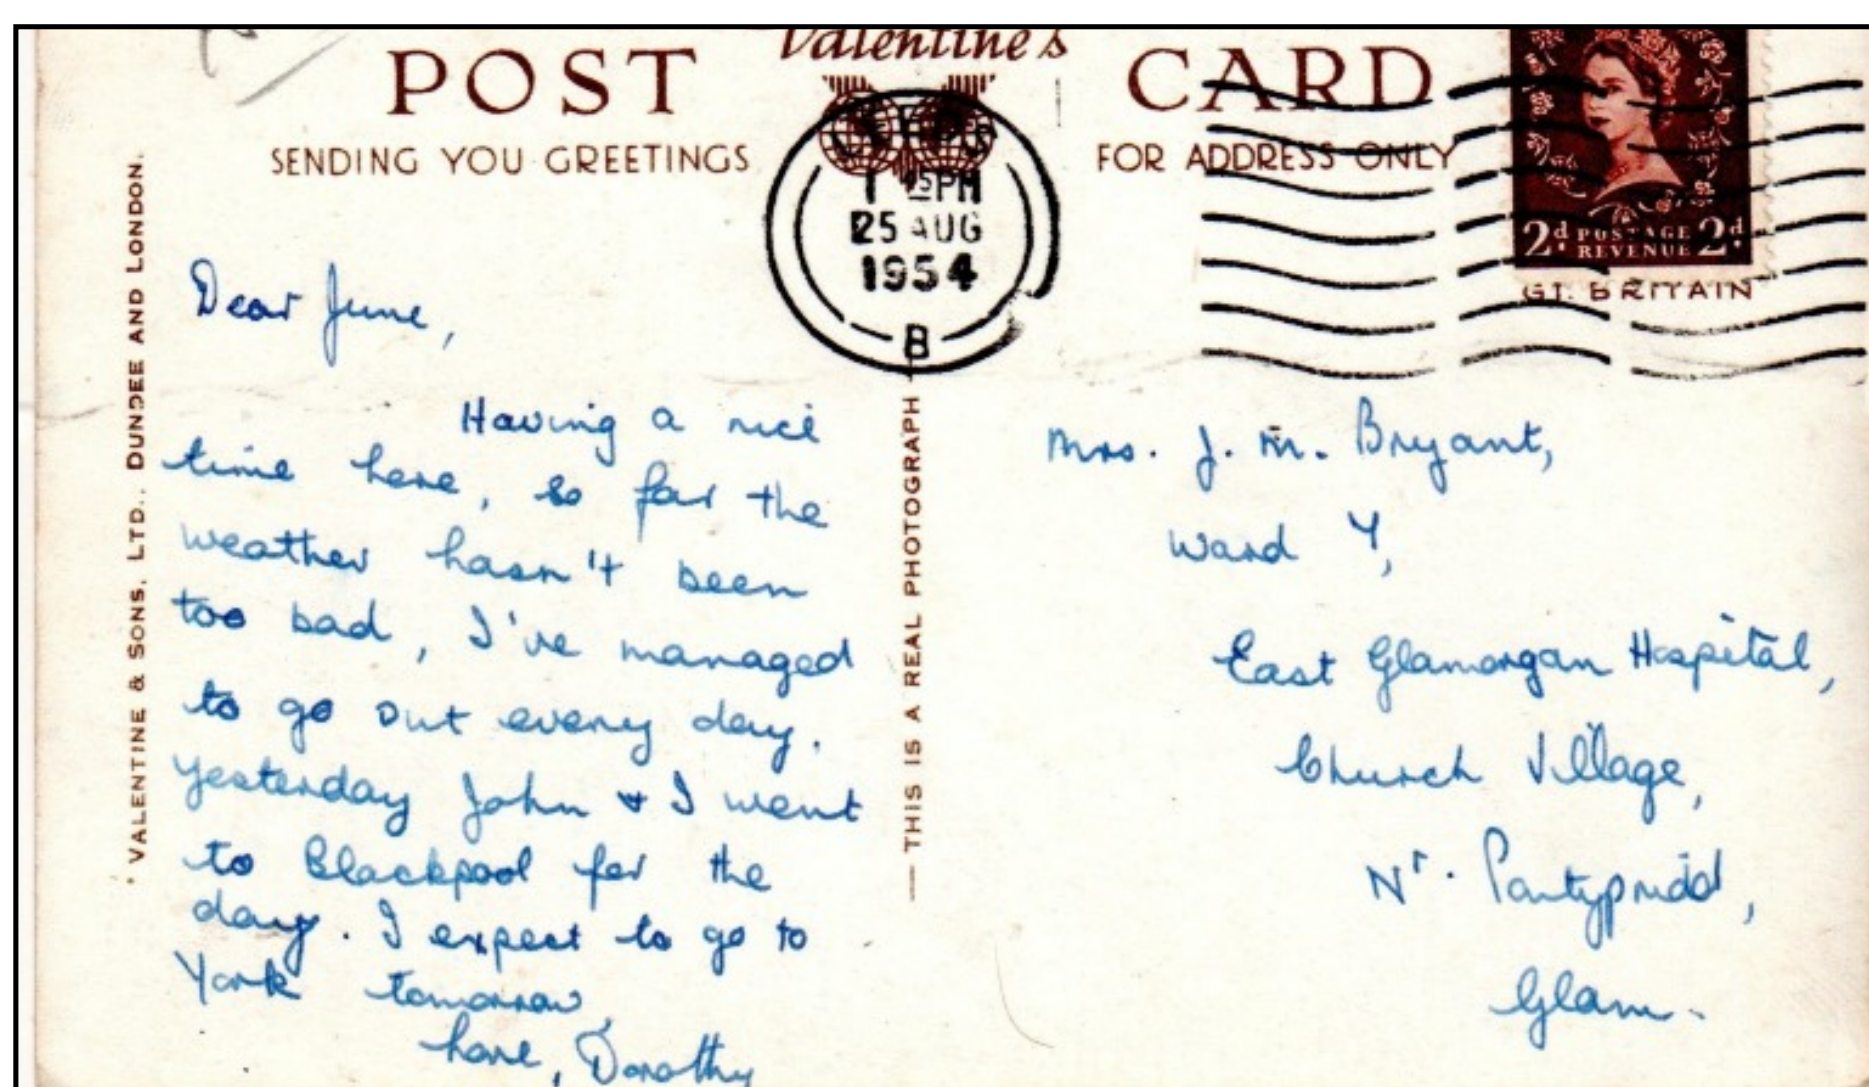 Valentine's
POST CARD
SENDING YOU GREETINGS
FOR ADDRESS ONLY
PM
25 AUG
1954
B
2d POSTAGE REVENUE 2d
GT. BRITAIN
VALENTINE & SONS, LTD., DUNDEE AND LONDON.
Dear June,
Having a nice
time here, so far the
weather hasn't been
too bad, I've managed
to go out every day.
Yesterday John & I went
to Blackpool for the
day. I expect to go to
York tomorrow,
love, Dorothy
THIS IS A REAL PHOTOGRAPH
Mrs. J. M. Bryant,
Ward Y,
East Glamorgan Hospital,
Church Village,
Nr. Pontypridd,
Glam.